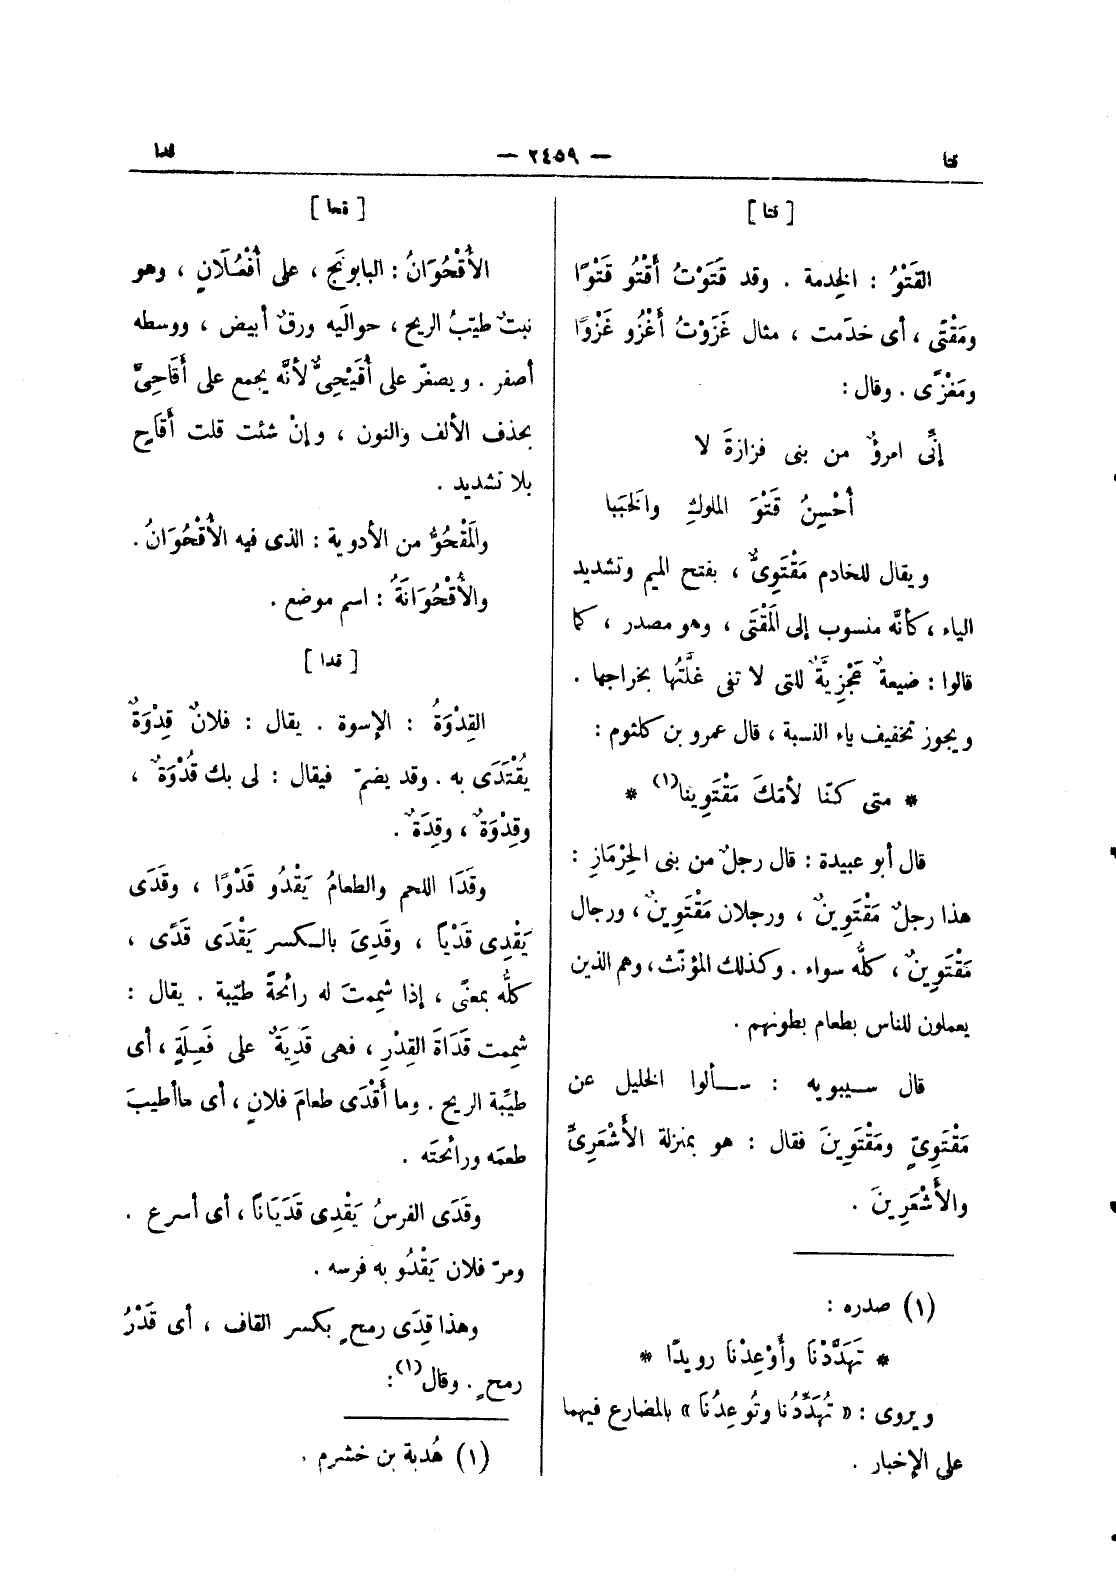 قتا
— ٢٤٥٩ —
قدا
[ قتا ]
القَتْوُ : الخِدمة . وقد قَتَوْتُ أَقْتُو قَتْوًا
ومَقْتًى ، أى خدَمت ، مثال غَزَوْتُ أَغْزُو غَزْوًا
ومَغْزًى . وقال :
إنِّى امرؤٌ من بنى فزازةَ لا
أُحْسِنُ قَتْوَ الملوكِ والخَبَبا
ويقال للخادم مَقْتَوِىٌّ ، بفتح الميم وتشديد
الياء ، كأنَّه منسوب إلى المَقْتَى ، وهو مصدر ، كما
قالوا : ضيعةٌ عَجْزِيَّةٌ للتى لا تفى غلَّتُها بخراجها .
ويجوز تخفيف ياء النسبة ، قال عمرو بن كلثوم :
* متى كنّا لأمّكَ مَقْتَوِينا(١) *
قال أبو عبيدة : قال رجلٌ من بنى الحِرْمازِ :
هذا رجلٌ مَقْتَوِينٌ ، ورجلان مَقْتَوِينٌ ، ورجال
مَقْتَوِينٌ ، كلُّه سواء . وكذلك المؤنّث ، وهم الذين
يعملون للناس بطعام بطونهم .
قال سيبويه : سألوا الخليل عن
مَقْتَوِىٍّ ومَقْتَوِينَ فقال : هو بمنزلة الأَشْعَرِىِّ
والأَشْعَرِينَ .
(١) صدره :
* تَهَدَّدْنَا وأَوْعِدْنَا رويدًا *
ويروى : « تُهَدِّدُنا وتُوعِدُنَا » بالمضارع فيهما
على الإخبار .
[ قحا ]
الأُقْحُوَانُ : البابونَج ، على أُفْعُلَانٍ ، وهو
نبتٌ طيّبُ الريح ، حوالَيه ورقٌ أبيض ، ووسطه
أصفر . ويصغّر على أُقَيْحِىٌّ لأنَّه يجمع على أَقَاحِىَّ
بحذف الألف والنون ، وإنْ شئت قلت أَقَاحٍ
بلا تشديد .
والمَقْحُوُّ من الأدوية : الذى فيه الأُقْحُوَانُ .
والأُقْحُوَانَةُ : اسم موضع .
[ قدا ]
القِدْوَةُ : الإسوة . يقال : فلانٌ قِدْوَةٌ
يُقْتَدَى به . وقد يضمّ فيقال : لى بك قُدْوَةٌ ،
وقِدْوَةٌ ، وقِدَةٌ .
وقَدَا اللحم والطعامُ يَقْدُو قَدْوًا ، وقَدَى
يَقْدِى قَدْياً ، وقَدِىَ بالكسر يَقْدَى قَدًى ،
كلُّه بمعنًى ، إذا شمِمتَ له رائحةً طيّبة . يقال :
شمِمت قَدَاةَ القِدْرِ ، فهى قَدِيَةٌ على فَعِلَةٍ ، أى
طيِّبة الريح . وما أَقْدَى طعامَ فلانٍ ، أى ماأطيبَ
طعمَه ورائحتَه .
وقَدَى الفرسُ يَقْدِى قَدَيَاناً ، أى أسرع .
ومرّ فلان يَقْدُو به فرسه .
وهذا قِدَى رمحٍ بكسر القاف ، أى قَدْرُ
رمحٍ . وقال(١) :
(١) هُدبة بن خشرم .